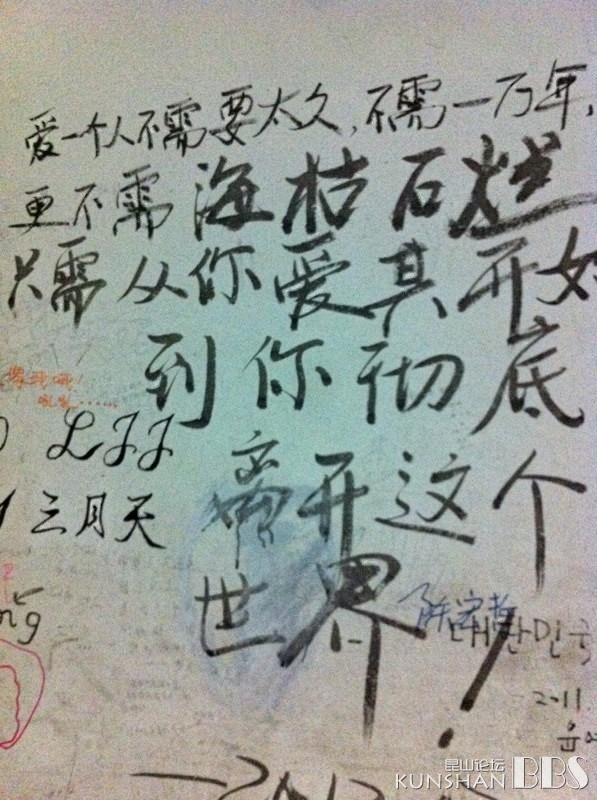 爱一个人不需要太久,不需一万年,
更不需海枯石烂
只需从你爱其开始
到你彻底
LJJ
离开这个
三月天
世界!
ng
대한민국
2011.
昆山论坛
KUNSHAN BBS